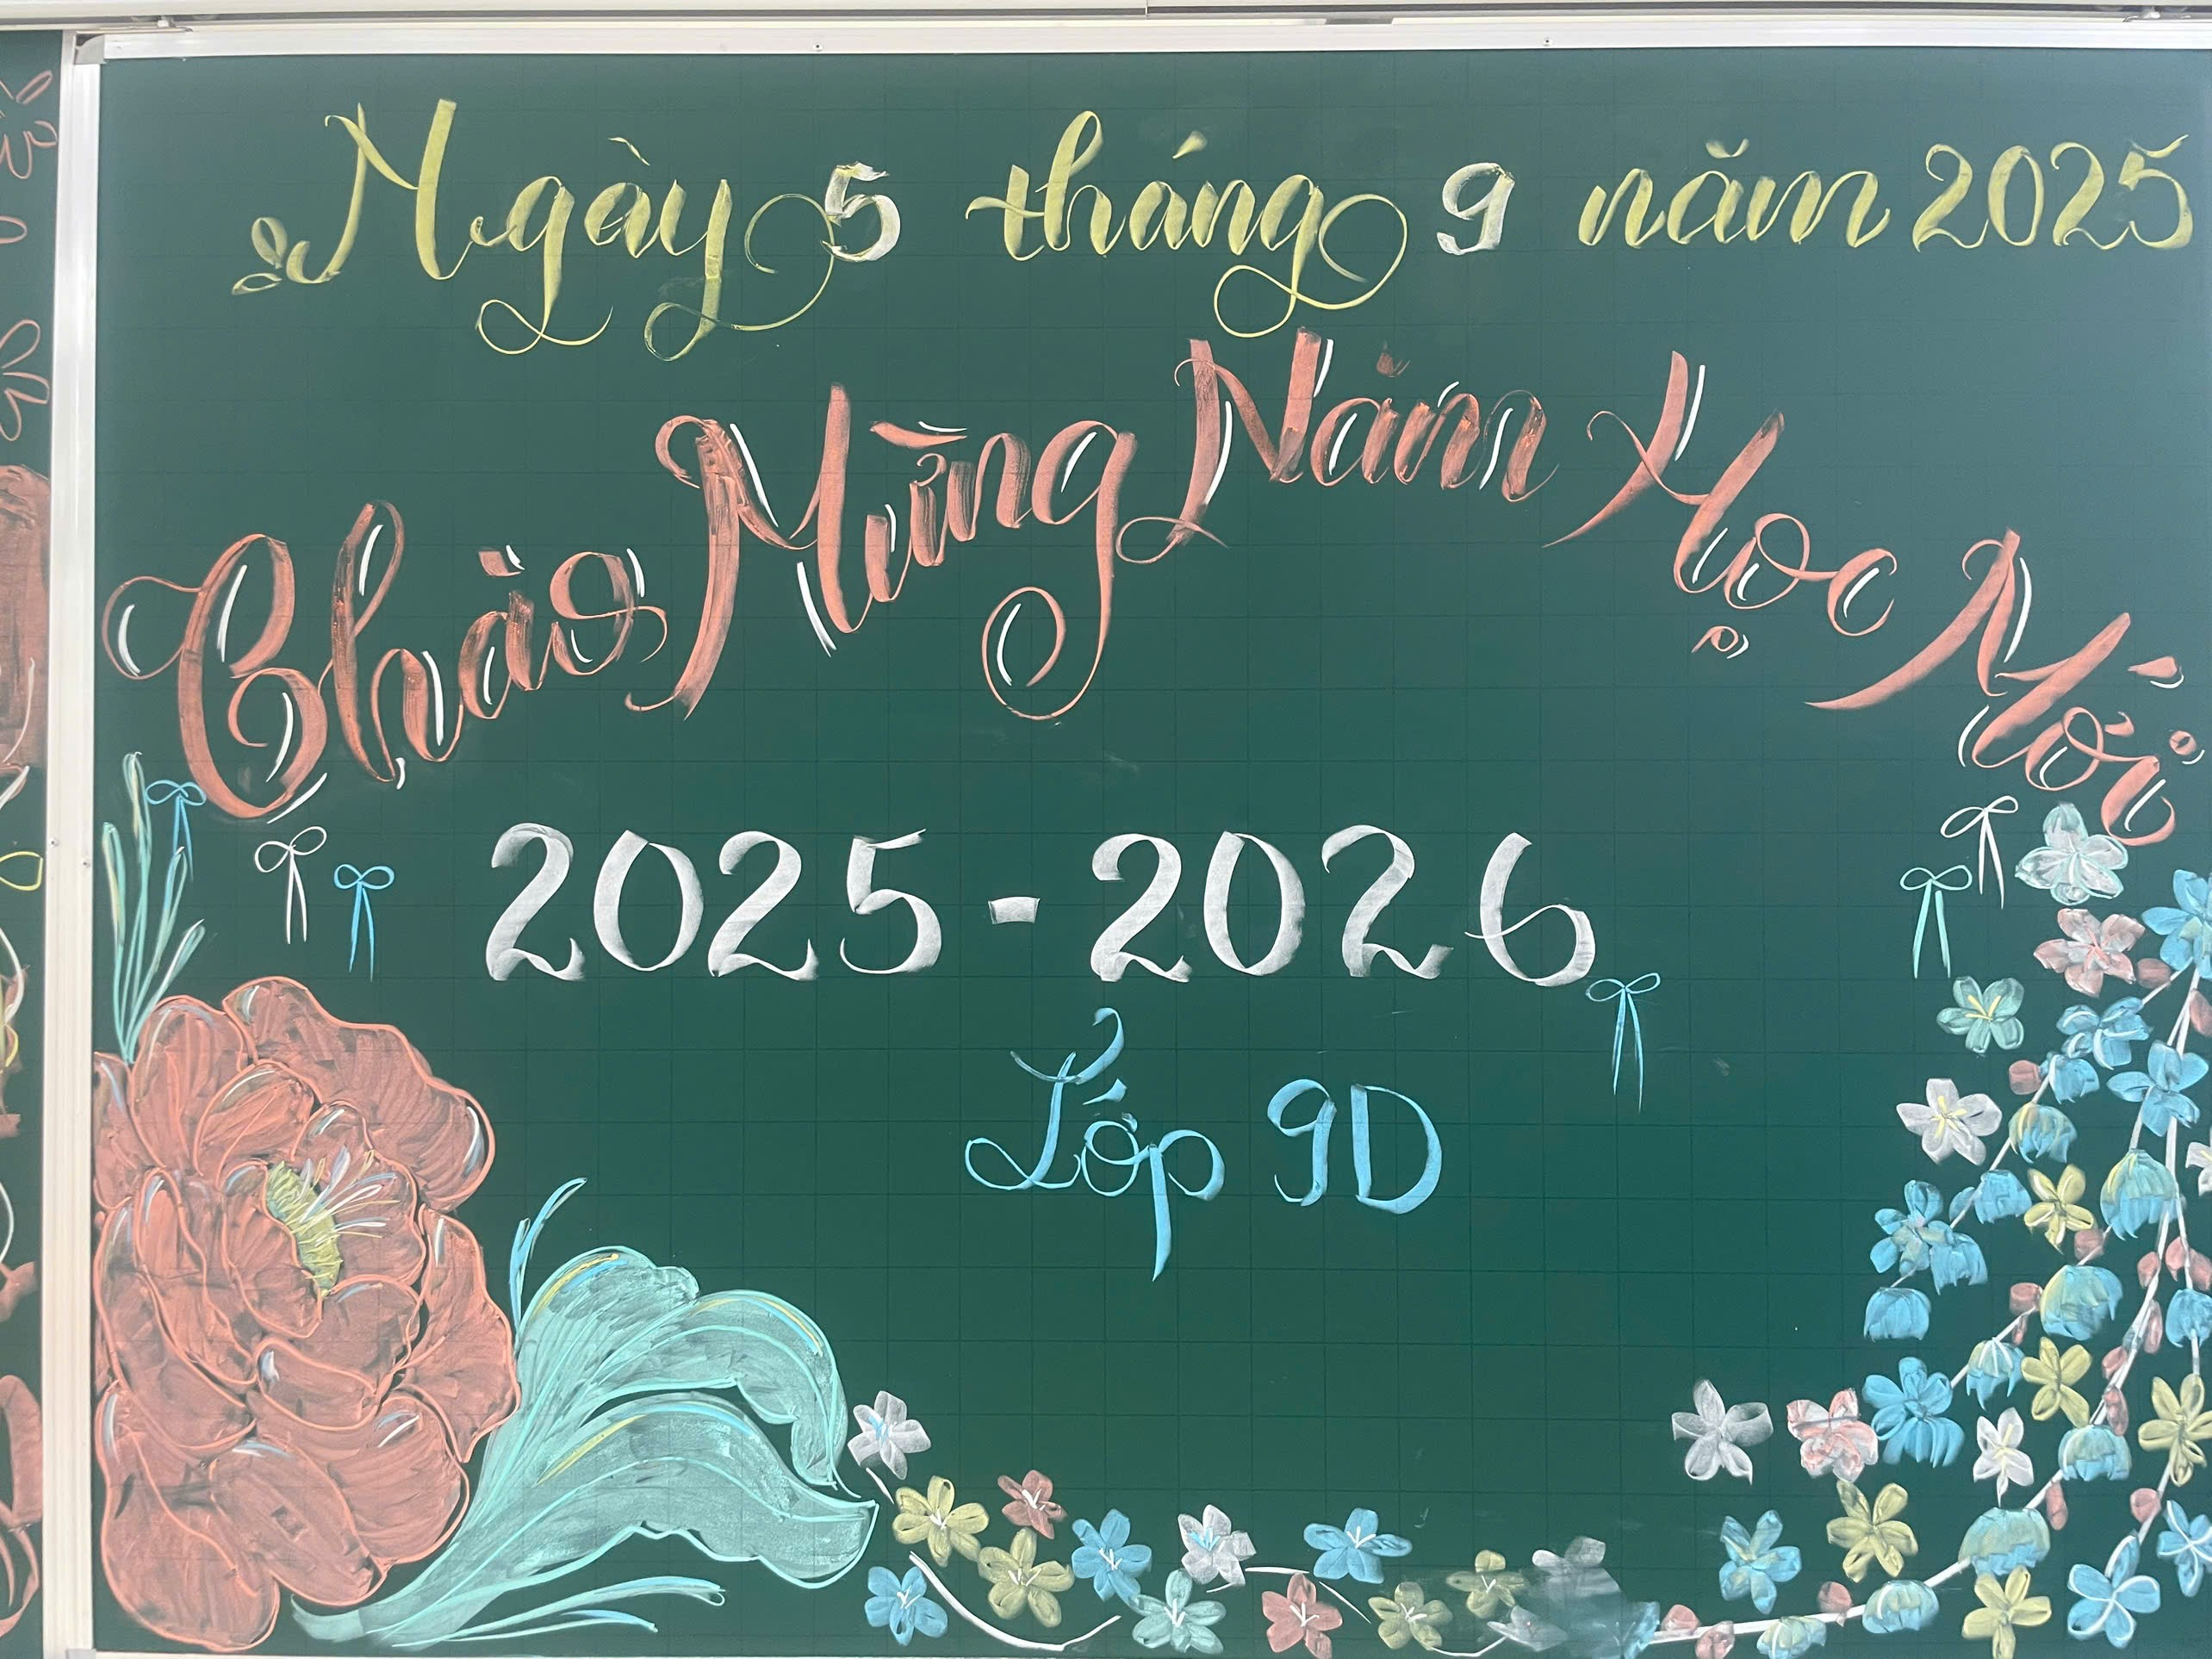 Ngày 5 tháng 9 năm 2025
Chào Mừng Năm Học Mới
2025-2026
Lớp 9D